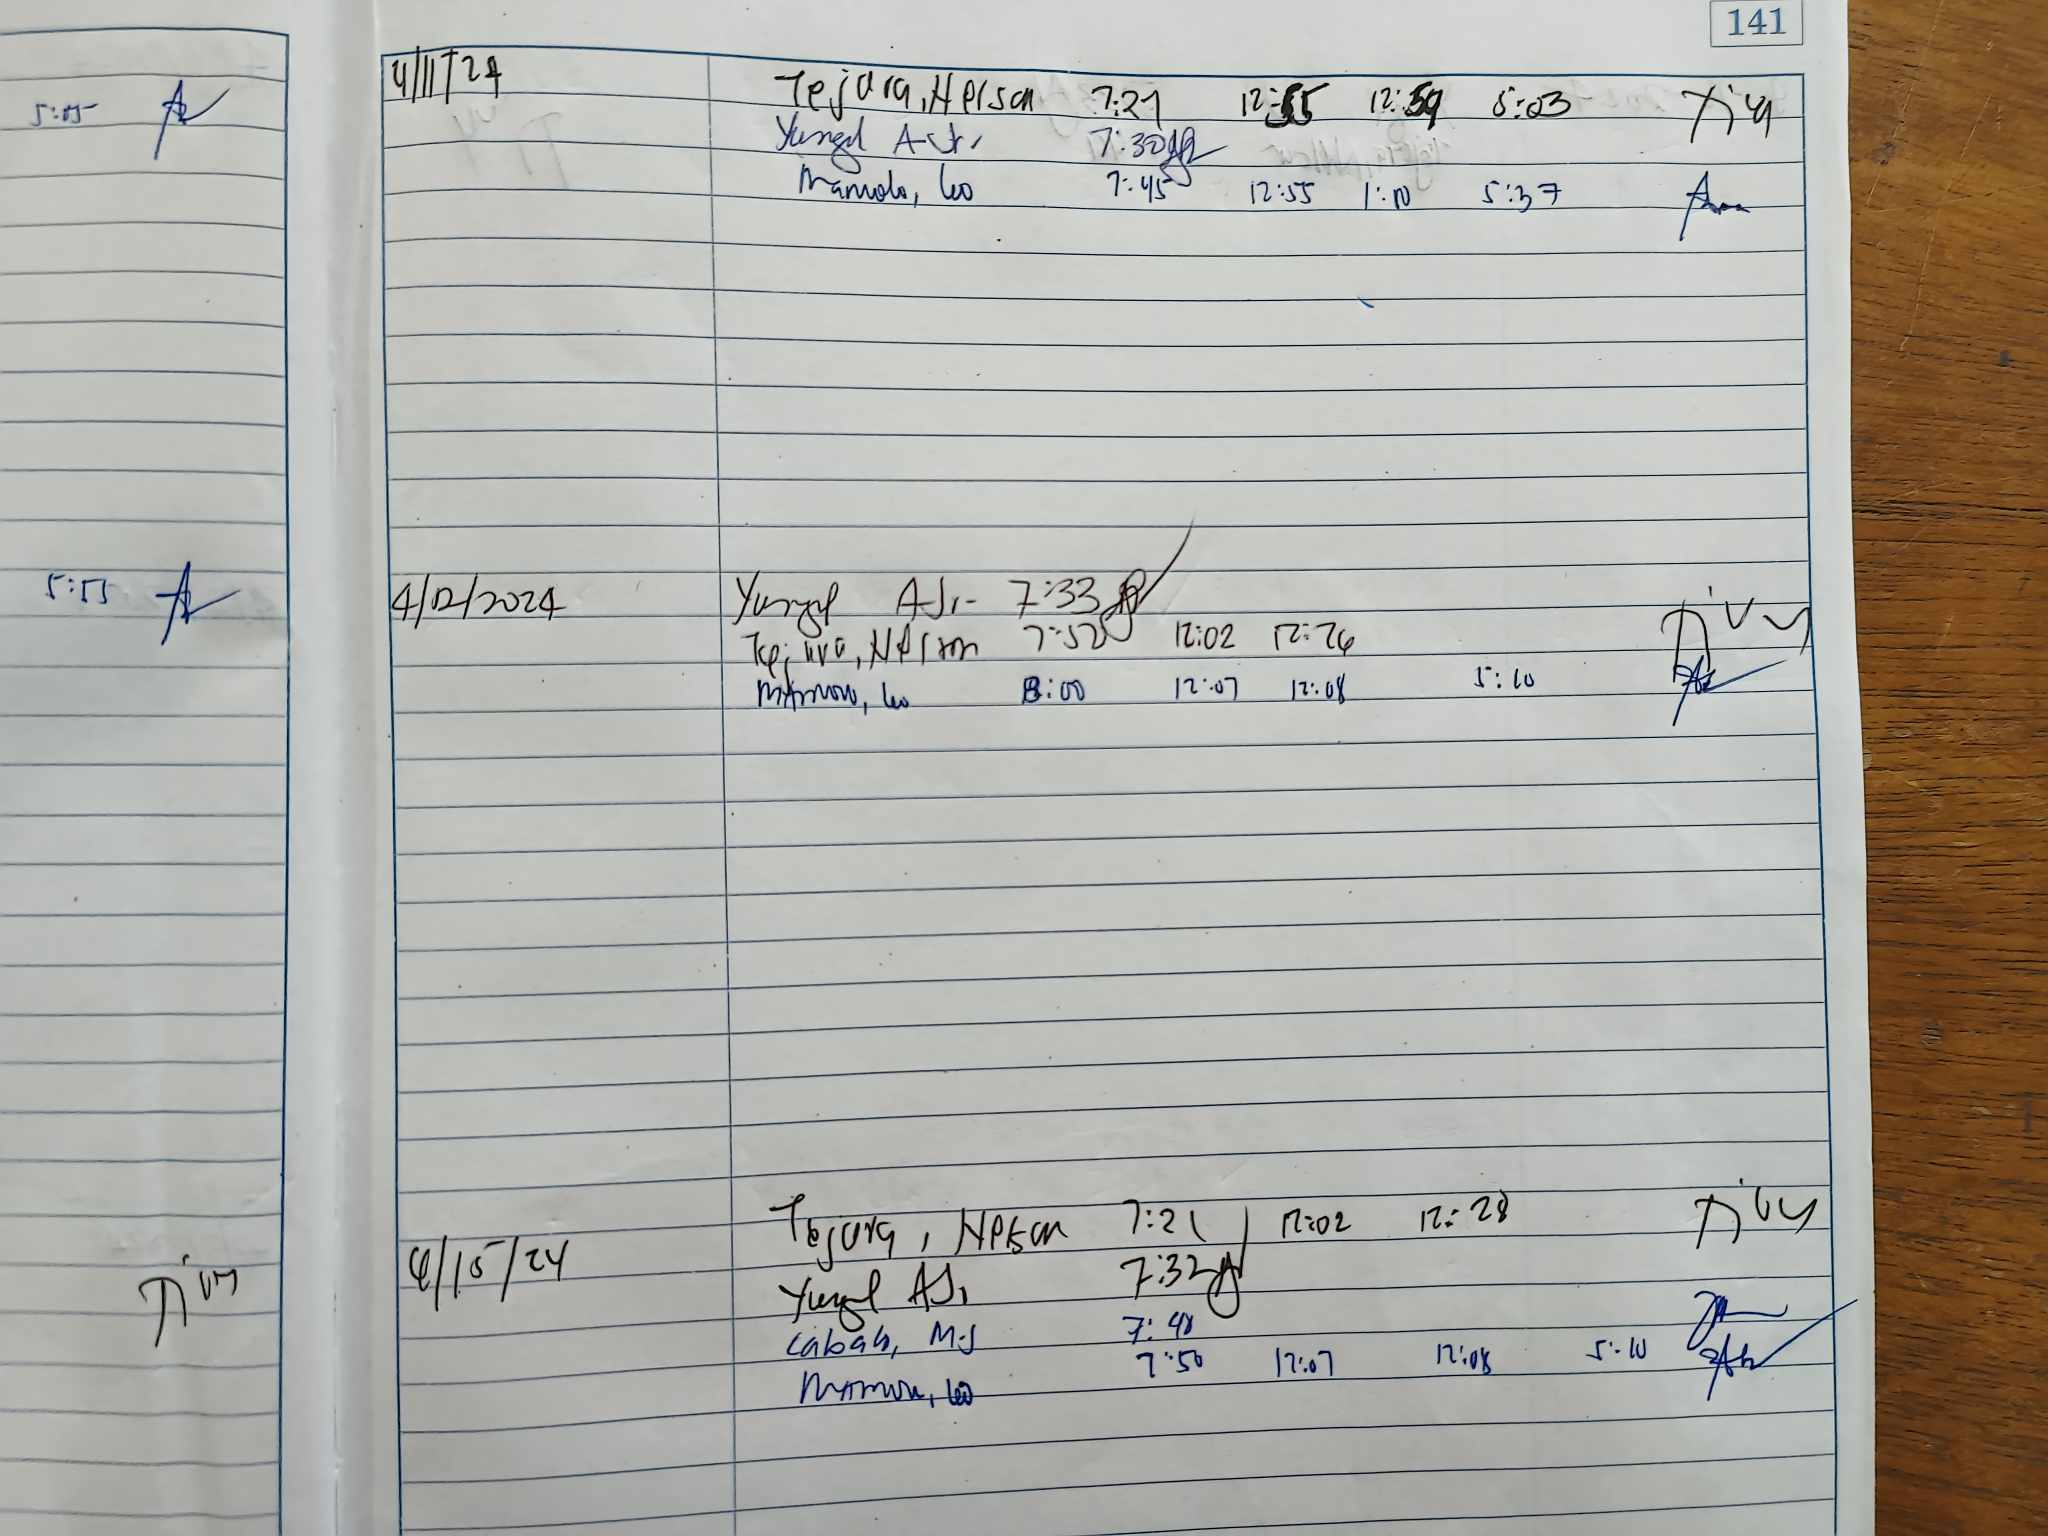 141
4/11/24 Tejura, Nelson 7:21 12:55 12:59 5:03
A Jr. 7:30
Mamolo, Leo 7:45 12:55 1:10 5:37
5:05
4/12/2024 A Jr. 7:33
Tejura, Nelson 7:52 12:02 12:26
Mamolo, Leo 8:00 12:07 12:08 5:10
5:55
Tejura, Nelson 7:21 12:02 12:28
4/15/24 AJ. 7:32
Cabab, MJ 7:48
7:50 12:07 12:08 5:10
Mamolo, Leo